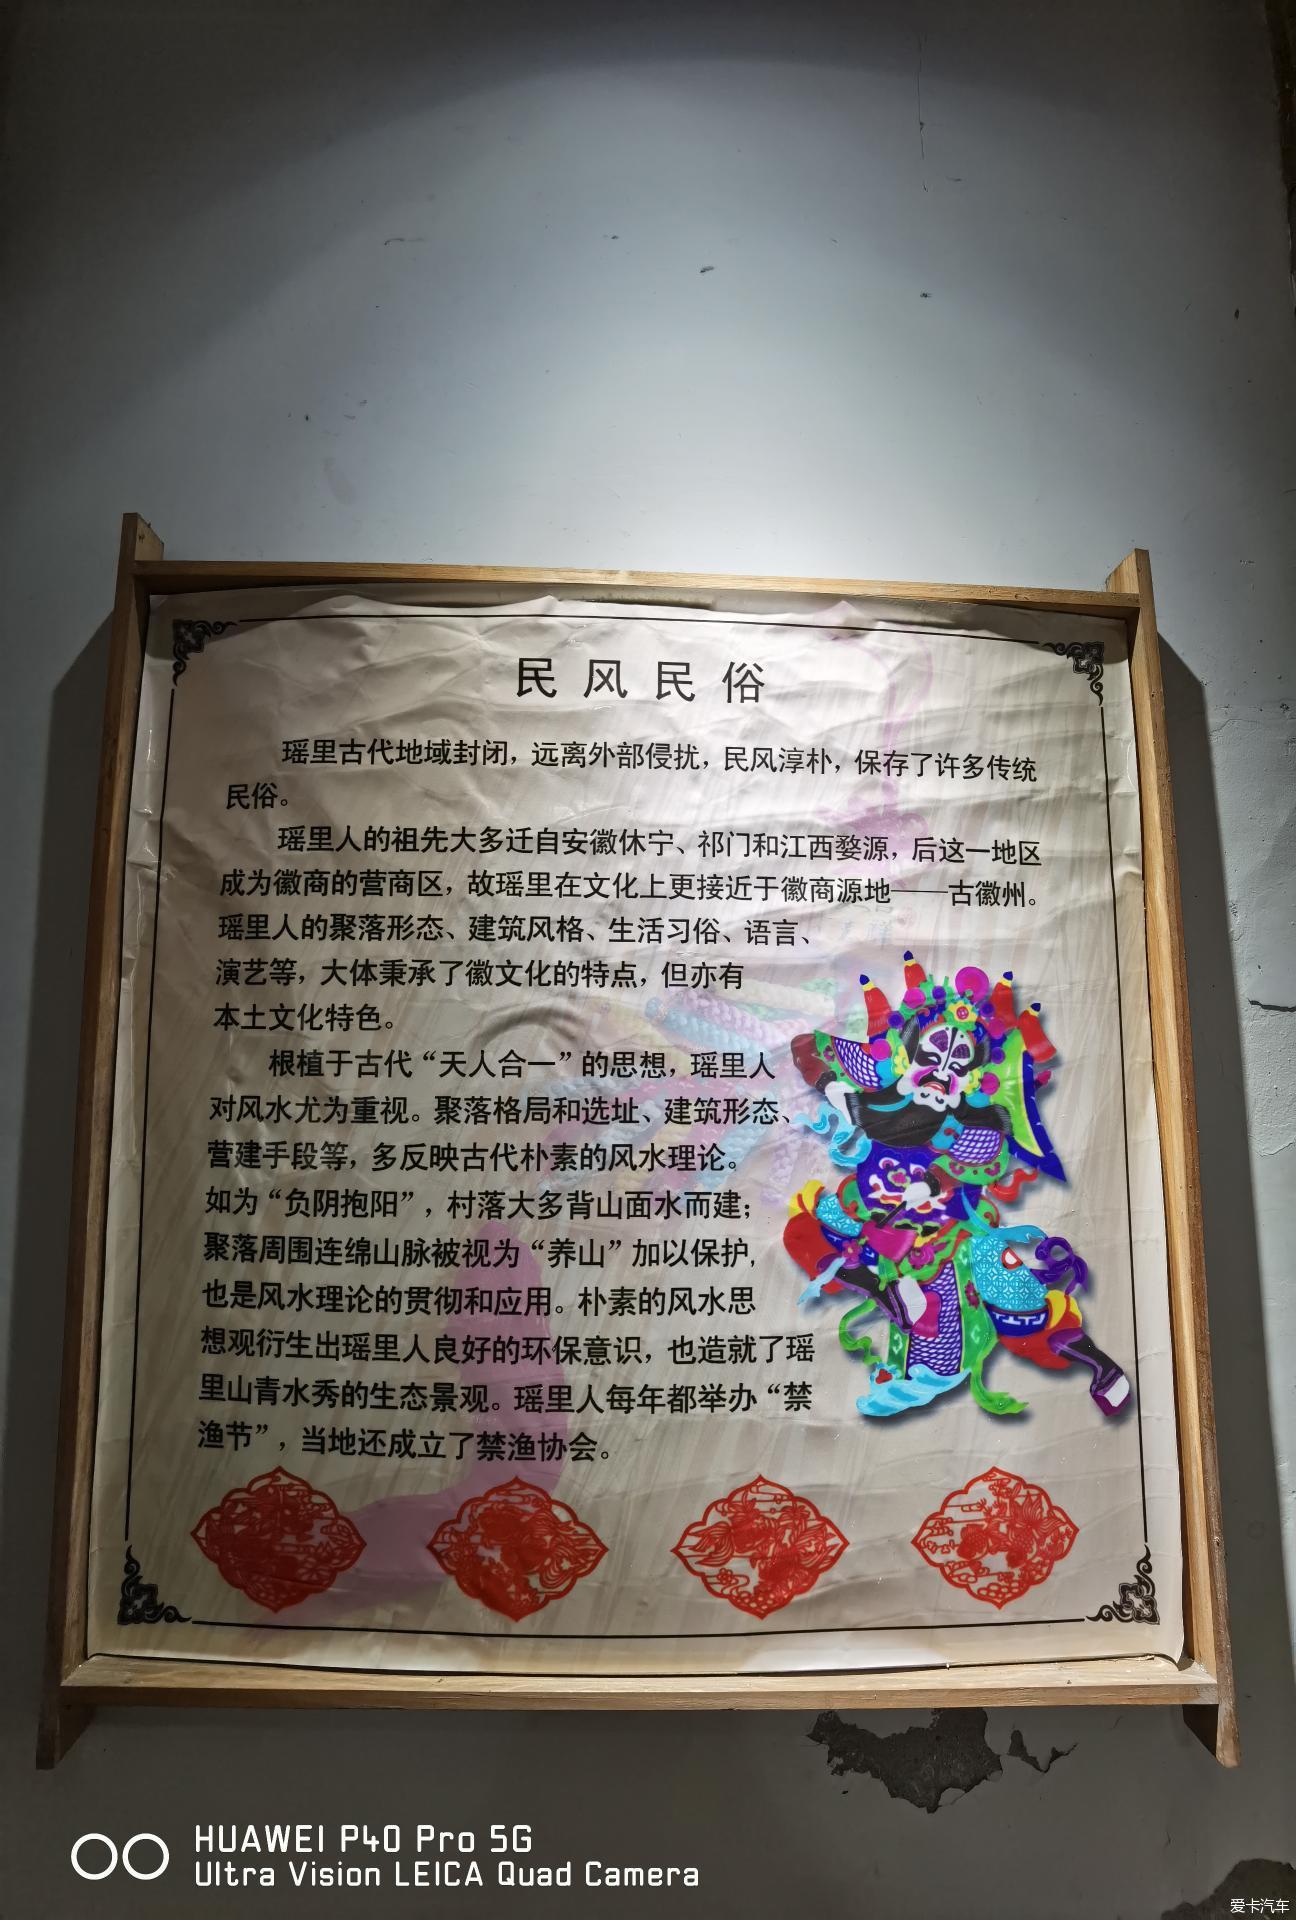 民风民俗
瑶里古代地域封闭，远离外部侵扰，民风淳朴，保存了许多传统
民俗。
瑶里人的祖先大多迁自安徽休宁、祁门和江西婺源，后这一地区
成为徽商的营商区，故瑶里在文化上更接近于徽商源地——古徽州。
瑶里人的聚落形态、建筑风格、生活习俗、语言、
演艺等，大体秉承了徽文化的特点，但亦有
本土文化特色。
根植于古代“天人合一”的思想，瑶里人
对风水尤为重视。聚落格局和选址、建筑形态、
营建手段等，多反映古代朴素的风水理论。
如为“负阴抱阳”，村落大多背山面水而建；
聚落周围连绵山脉被视为“养山”加以保护，
也是风水理论的贯彻和应用。朴素的风水思
想观衍生出瑶里人良好的环保意识，也造就了瑶
里山青水秀的生态景观。瑶里人每年都举办“禁
渔节”，当地还成立了禁渔协会。
HUAWEI P40 Pro 5G
Ultra Vision LEICA Quad Camera
爱卡汽车